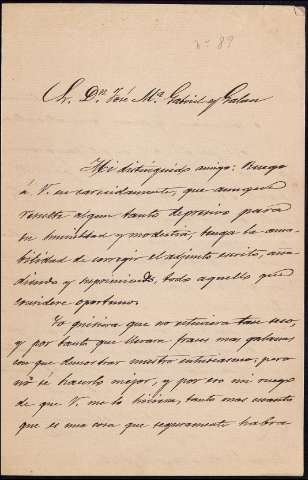 nº 89
Sr. Dn. José Mª Gabriel y Galan
Mi distinguido amigo: Ruego
á V. encarecidamente, que aunque
resulte algun tanto depresivo para
su humildad y modestia, tenga la ama-
bilidad de corregir el adjunto escrito, aña-
diendo y suprimiendo, todo aquello que
considere oportuno.
Yo quisiera que no estuviera tan seco,
y por tanto que llevara frases mas galanas
con que demostrar nuestro entusiasmo; pero
no sé hacerlo mejor, y por eso mi ruego
de que V. me lo hiciera, tanto mas cuanto
que es una cosa que seguramente habra